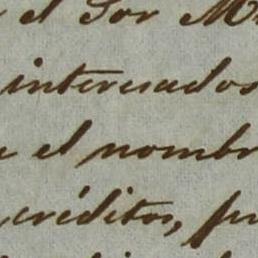 el Sor M
interesados
el nombr
créditos, p